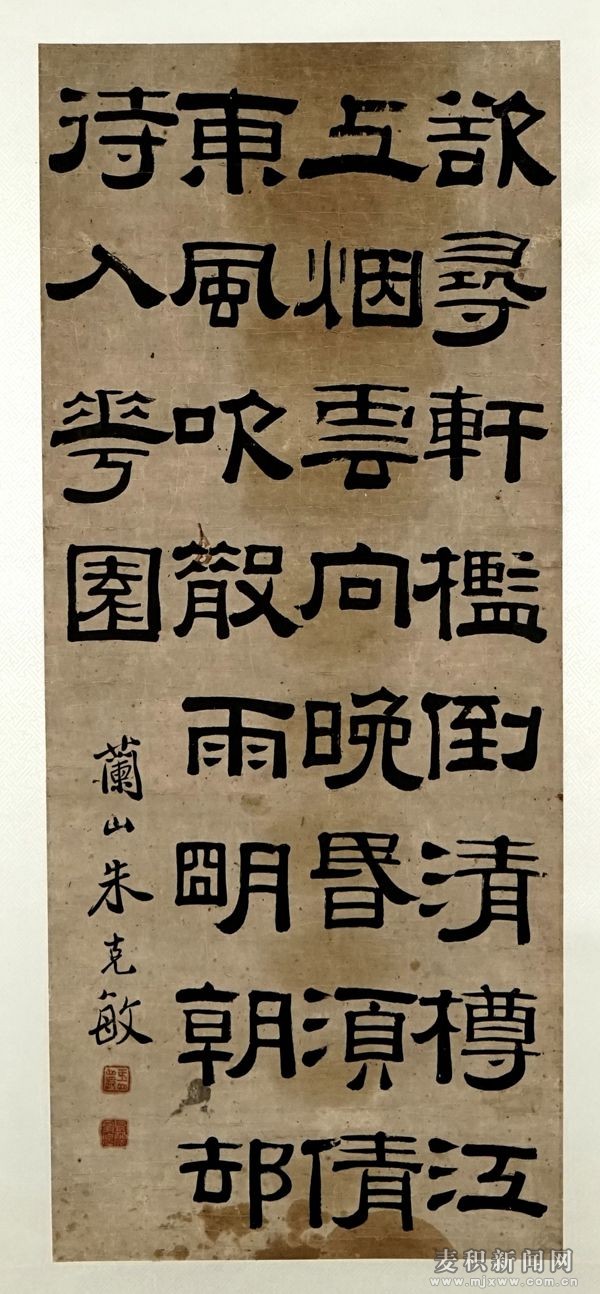 欲尋軒檻倒清樽江
上烟雲向晚昏須倩
東風吹散雨朙朝却
待入花園
蘭山朱克敏
麦积新闻网
www.mjxww.com